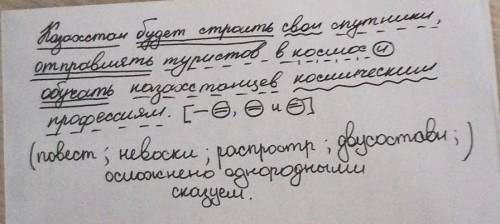 Казахстан будет строить свои спутники,
отправлять туристов в космос и
обучать казахстанцев космическим
профессиям. [— =, = и =]
(повест; невоскл; распростр; двусоставн;)
осложнено однородными
сказуем.